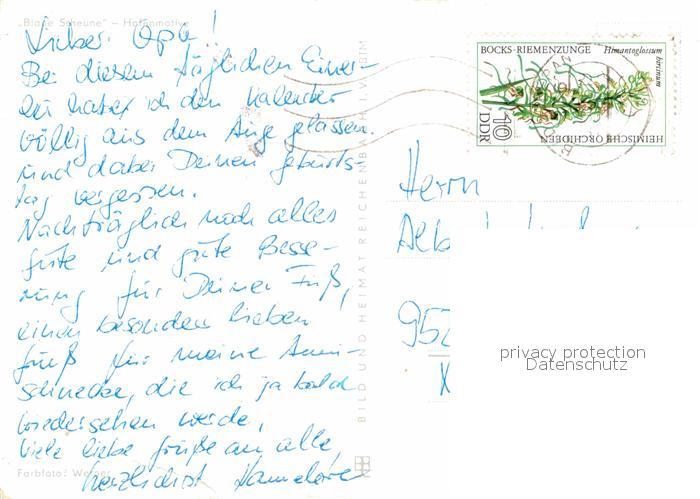 „Blaue Scheune" – Hafenmotive
Lieber Opa!
Bei diesem täglichen Einer-
lei habe ich den Kalender
völlig aus dem Auge gelassen.
und dabei Deinen Geburts-
tag vergessen.
Nachträglich noch alles
Gute und gute Besse-
rung für Deinen Fuß,
einen besonders lieben
Gruß für meine
schnecke, die ich ja bald
wiedersehen werde,
viele liebe Grüße an alle,
herzlichst Hannelore
Farbfoto: Werner
BILD UND HEIMAT REICHENBACH I. V.
BOCKS-RIEMENZUNGE
Himantoglossum
hircinum
10
DDR
HEIMISCHE ORCHIDEEN
Herrn
952
privacy protection
Datenschutz